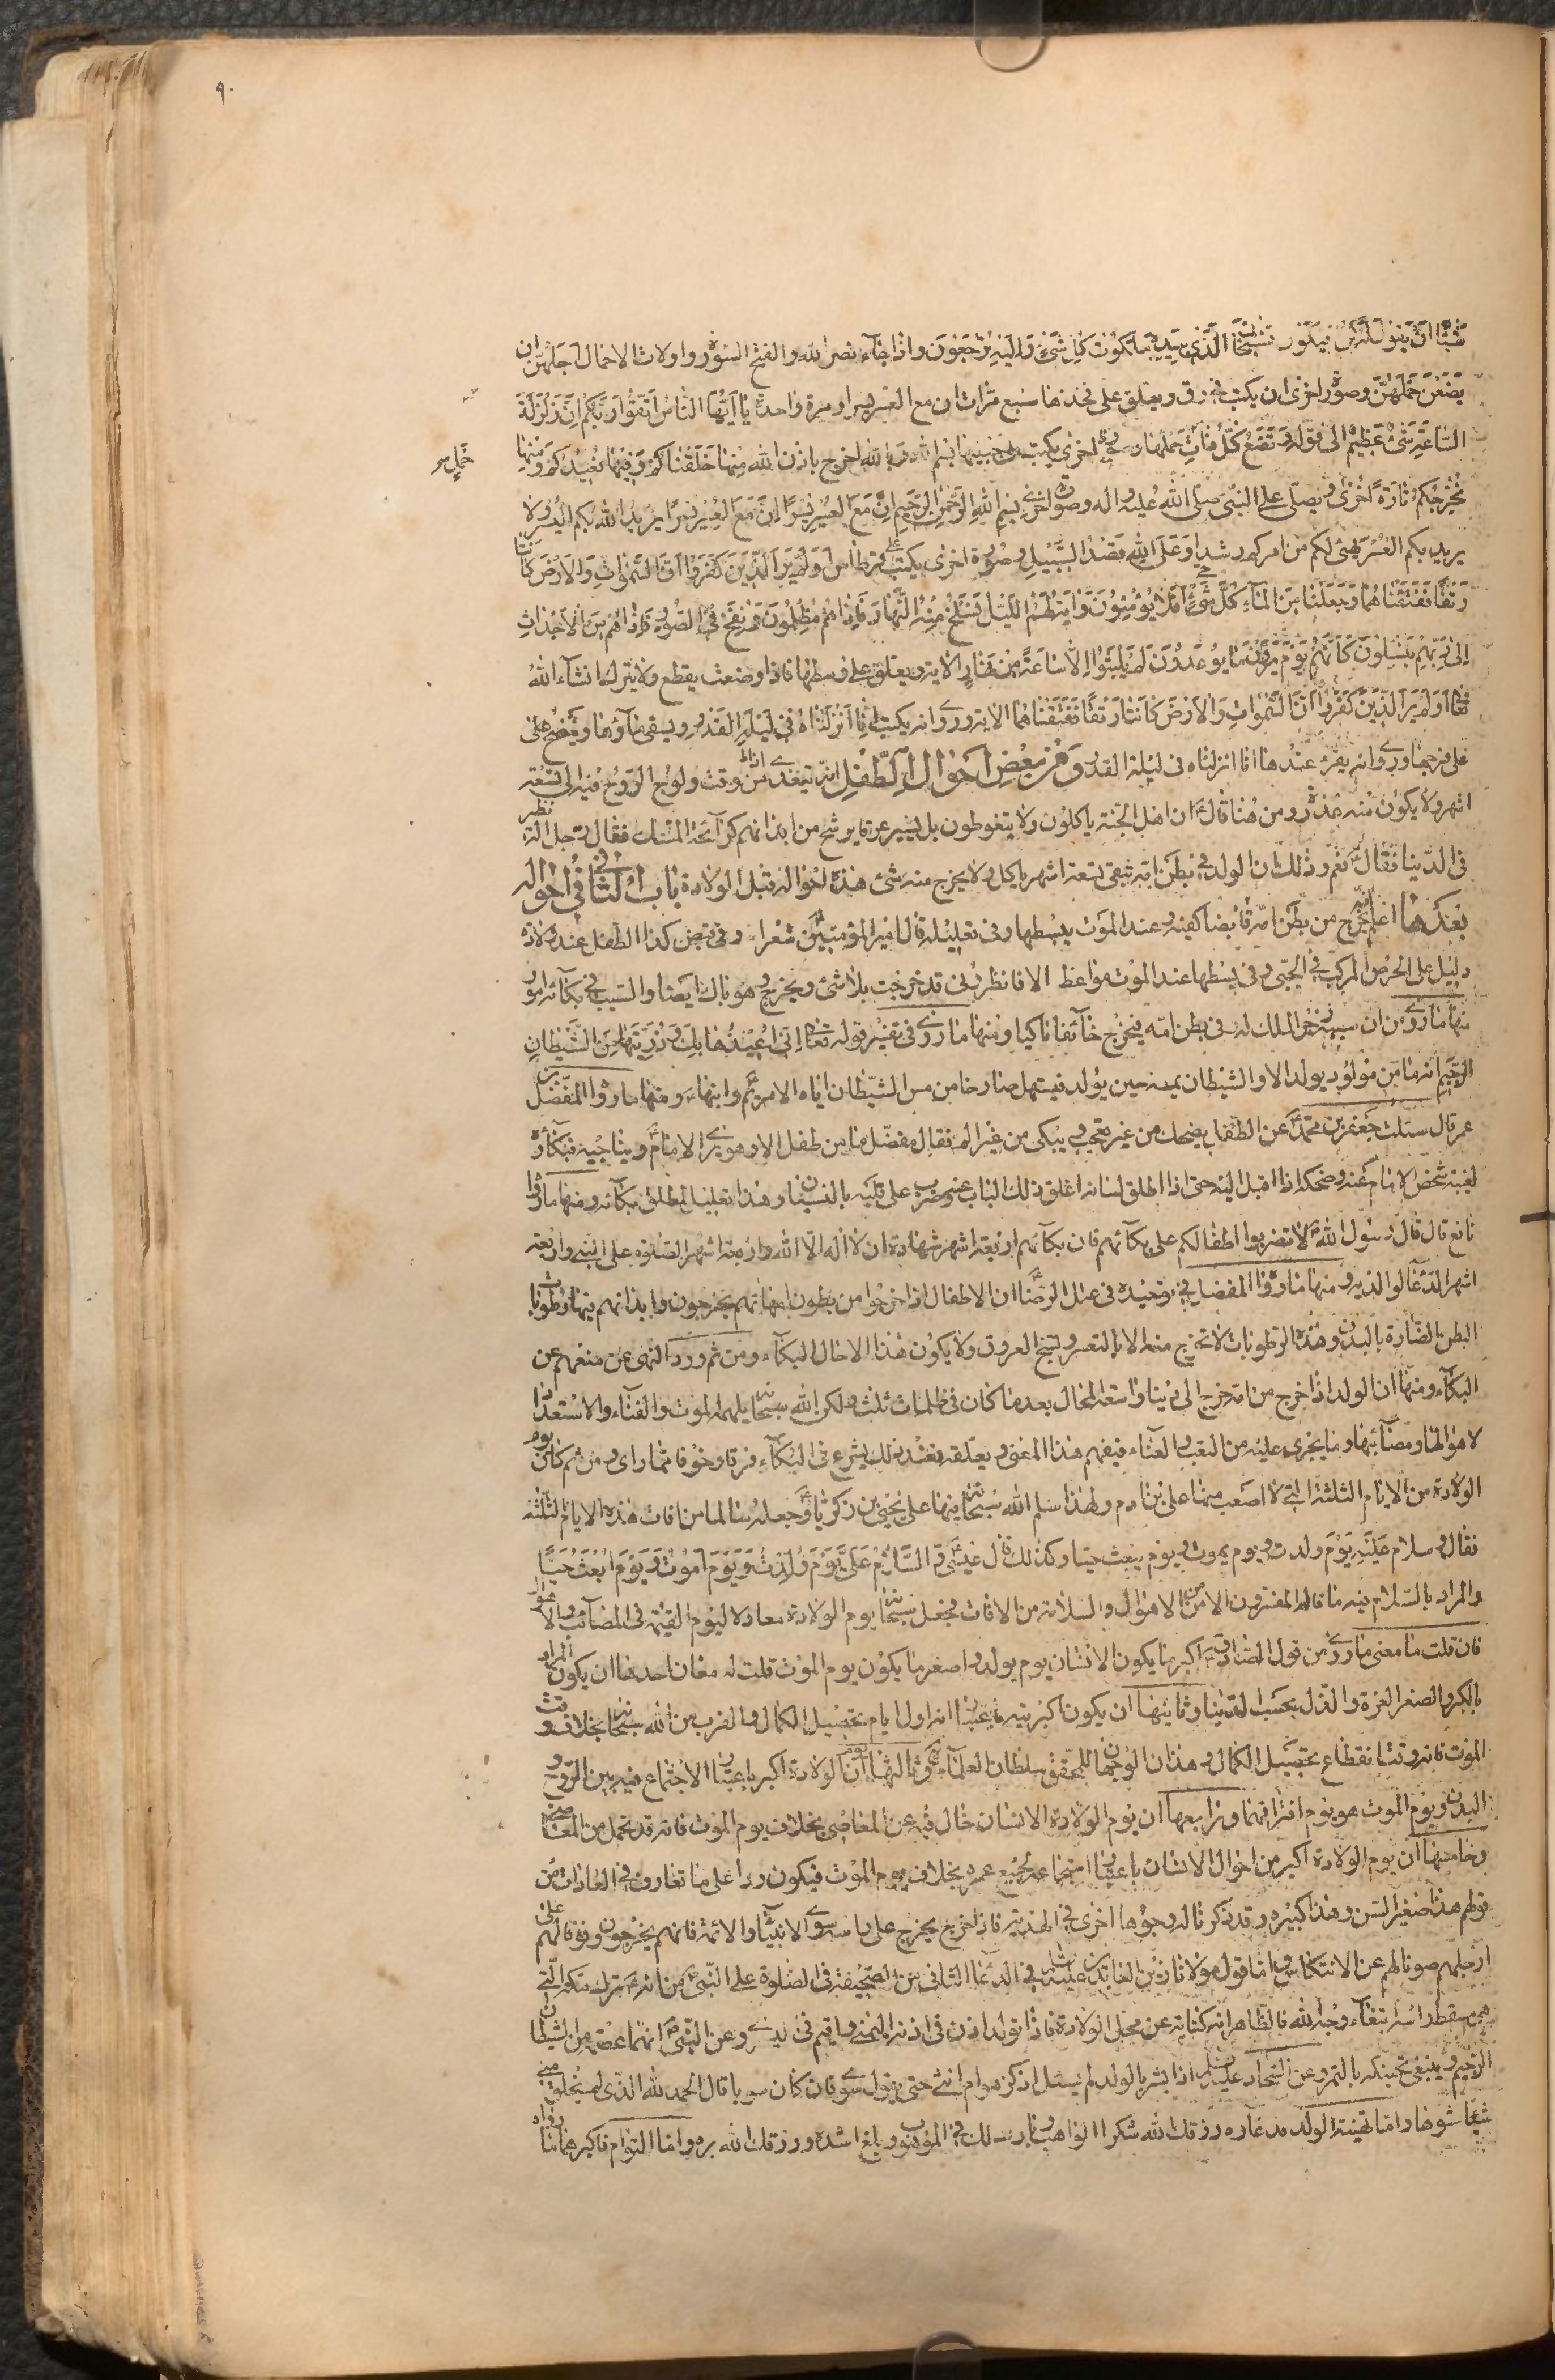 ٩٠
شيئا ان يقول له كن فيكون فسبحان الذي بيده ملكوت كل شئ واليه ترجعون واذا جاء نصر الله والفتح السورة واولات الاحمال اجلهن ان
يضعن حملهن وصورة اخرى ان يكتب في رق ويعلق على فخذها سبع مرات ان مع العسر يسرا ومرة واحدة يا ايها الناس اتقوا ربكم ان زلزلة
الساعة شئ عظيم الى قوله وتضع كل ذات حملها اخرى يكتب على جنبيها بسم الله وبالله اخرج باذن الله منها خلقناكم وفيها نعيدكم ومنها
حمل
نخرجكم تارة اخرى ويصلى على النبي صلى الله عليه واله وصورة اخرى بسم الله الرحمن الرحيم ان مع العسر يسرا ان مع العسر يسرا يريد الله بكم اليسر ولا
يريد بكم العسر يهيئ لكم من امركم رشدا وعلى الله قصد السبيل وصورة اخرى يكتب على قرطاس اولم ير الذين كفروا ان السموات والارض كانتا
رتقا ففتقناهما وجعلنا من الماء كل شئ حي افلا يؤمنون واية لهم الليل نسلخ منه النهار فاذا هم مظلمون ونفخ في الصور فاذا هم من الاجداث
الى ربهم ينسلون كانهم يوم يرون ما يوعدون لم يلبثوا الا ساعة من نهار الاية ويعلق على وسطها فاذا وضعت يقطع ولا يترك انشآء الله
تعا اولم ير الذين كفروا ان السموات والارض كانتا رتقا ففتقناهما الاية وروى انه يكتب لها انا انزلناه في ليلة القدر ويسقى ماؤها وينضح على
على فرجها وروى انه يقرء عندها انا انزلناه في ليلة القدر ومن بعض احوال الطفل انه يتغذى من وقت ولوج الروح فيه الى تسعة
اشهر ولا يكون منه عذرة ومن هنا قال ان اهل الجنة ياكلون ولا يتغوطون بل يصير عرقا يرشح من ابدانهم كرآئحة المسك فقال رجل اله نظير
في الدنيا فقال نعم وذلك ان الولد في بطن امه تبقى تسعة اشهر ياكل ولا يخرج منه شئ هذه احواله قبل الولادة باب الثاني في احواله
بعدها اعلم انه يخرج من بطن امه قابضا كفيه وعند الموت يبسطها وفي تعليله قال امير المؤمنين شعرا وفي قبض كف الطفل عند ولادة
دليل على الحرص المركب في الحي وفي بسطها عند الموت مواعظ الا فانظروني قد خرجت بلا شئ ويخرج وهو باك ايضا والسبب في بكائه امور
منها ما روى من ان سببه زجر الملك له في بطن امه فيخرج خآئفا باكيا ومنها ما روى في تفسير قوله تعا اني اعيذها بك وذريتها من الشيطان
الرجيم انه ما من مولود يولد الا والشيطان يمسه حين يولد فيستهل صارخا من مس الشيطان اياه الا مريم وابنها ومنها ما رواه المفضل بن
عمر قال سئلت جعفر بن محمد عن الطفل يضحك من غير عجب ويبكى من غير الم فقال يا مفضل ما من طفل الا وهو يرى الامام ويناجيه فبكاؤه
لغيبة شخص الامام عنه وضحكه اذا اقبل اليه حتى اذا اطلق لسانه اغلق ذلك الباب عنه وضرب على قلبه بالنسيان وهذا تعليل لمطلق بكآئه ومنها ما رواه
نافع قال قال رسول الله لا تضربوا اطفالكم على بكآئهم فان بكآئهم اربعة اشهر شهادة ان لا اله الا الله واربعة اشهر الصلوة على النبي واربعة
اشهر الدعآء لوالديه ومنها ما رواه المفضل في توحيده في علل الرضا ان الاطفال اذا خرجوا من بطون امهاتهم يخرجون وابدانهم فيها رطوبات
البطن الضارة بالبدن وهذه الرطوبات لا تخرج منه الا بالتعصر ولتنخ العروق ولا يكون هذا الا حال البكآء ومن ثم ورد النهى عن منعهم عن
البكآء ومنها ان الولد اذا خرج من امه خرج الى دنيا واسعة المحال بعد ما كان في ظلمات ثلث ولكن الله سبحانه يلهمه الموت والفنآء والاستعداد
لاهوالها ومصائبها وما يجرى عليه من التعب والعنآء فيفهم هذا المعنى ويعلقه فعند ذلك يشرع في البكآء فرقا وخوفا مما راى ومن ثم كان يوم
الولادة من الايام الثلثة التي لا اصعب منها على بني ادم ولهذا سلم الله سبحانه فيها على يحيى بن زكريا وجعله سالما من افات هذه الايام الثلثة
فقال وسلام عليه يوم ولدت ويوم يموت ويوم يبعث حيا وكذلك قال عيسى والسلام على يوم ولدت ويوم اموت ويوم ابعث حيا
والمراد بالسلام فيه ما قاله المفسرون الامن من الاهوال والسلامة من الافات فجعل سبحانه يوم الولادة معادلا ليوم القيمة في المصآئب والاهوال
فان قلت ما معنى ما روى من قول الصادق اكبر ما يكون الانسان يوم يولد واصغر ما يكون يوم الموت قلت له معان احدها ان يكون المراد
بالكبر والصغر العزة والذل بحسب الدنيا وثانيها ان يكون اكبريته باعتبار انه اول ايام تحصيل الكمال والقرب من الله سبحانه بخلاف وقت
الموت فانه وقت انقطاع تحصيل الكمال وهذان الوجهان للمحقق سلطان العلمآء وثالثها ان يوم الولادة اكبر باعتبار الاجتماع فيه بين الروح و
البدن ويوم الموت هو يوم افتراقهما ورابعها ان يوم الولادة الانسان خال فيه عن المعاصي بخلاف يوم الموت فانه قد تحمل من المعاصي
وخامسها ان يوم الولادة اكبر من احوال الانسان باعتبار استجماعه لجميع عمره بخلاف يوم الموت فيكون ردا على ما تعارف في العادات من
قولهم هذا صغير السن وهذا كبيره وقد ذكر ثاله وجوها اخرى في الهدية فاذا خرج يخرج على راسه سوى الانبيآء والائمة فانهم يخرجون وفا لهم على
ارجلهم صونا لهم عن الانتكاس واما قول مولانا زين العابدين عليه السلام في الدعا الثاني من الصحيفة في الصلوة على النبي من انه ترك مكة التي
هي مسقط راسه ابتغآء وجه الله فالظاهر انه كناية عن محل الولادة فاذا تولد اذن في اذنه اليمنى واقيم في اليسرى وعن النبي انهما عصمة من الشيطان
الرجيم وينبغى تحنيكه بالتمر وعن السجاد عليه السلام اذا بشر بالولد لم يسئل اذكر هو ام انثى حتى يقول سوى فان كان سويا قال الحمد لله الذي لم يخلق مني
شيئا مشوها واما تهنية الولد فدعاؤه رزقك الله شكر الواهب وبارك لك في الموهوب وبلغ اشده ورزقك الله بره واما التوام فاكبرهما ما رواه